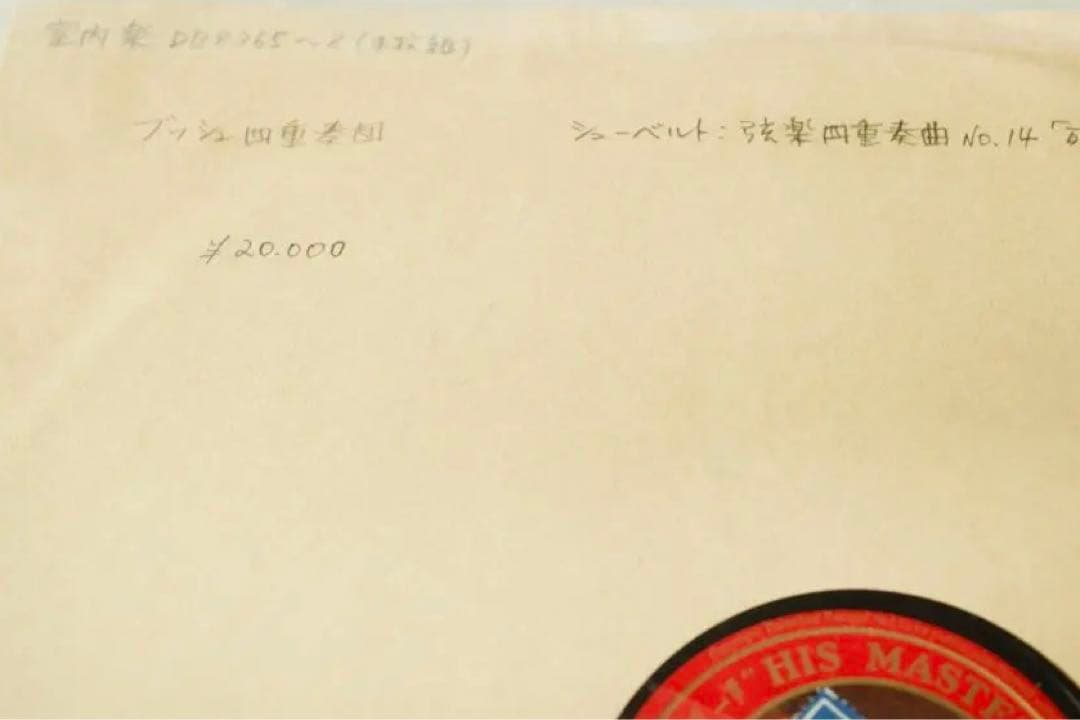 室内楽 DB8765~8 (4枚組)
ブッシュ四重奏団
シューベルト: 弦楽四重奏曲 No.14「
¥20.000
"HIS MASTE